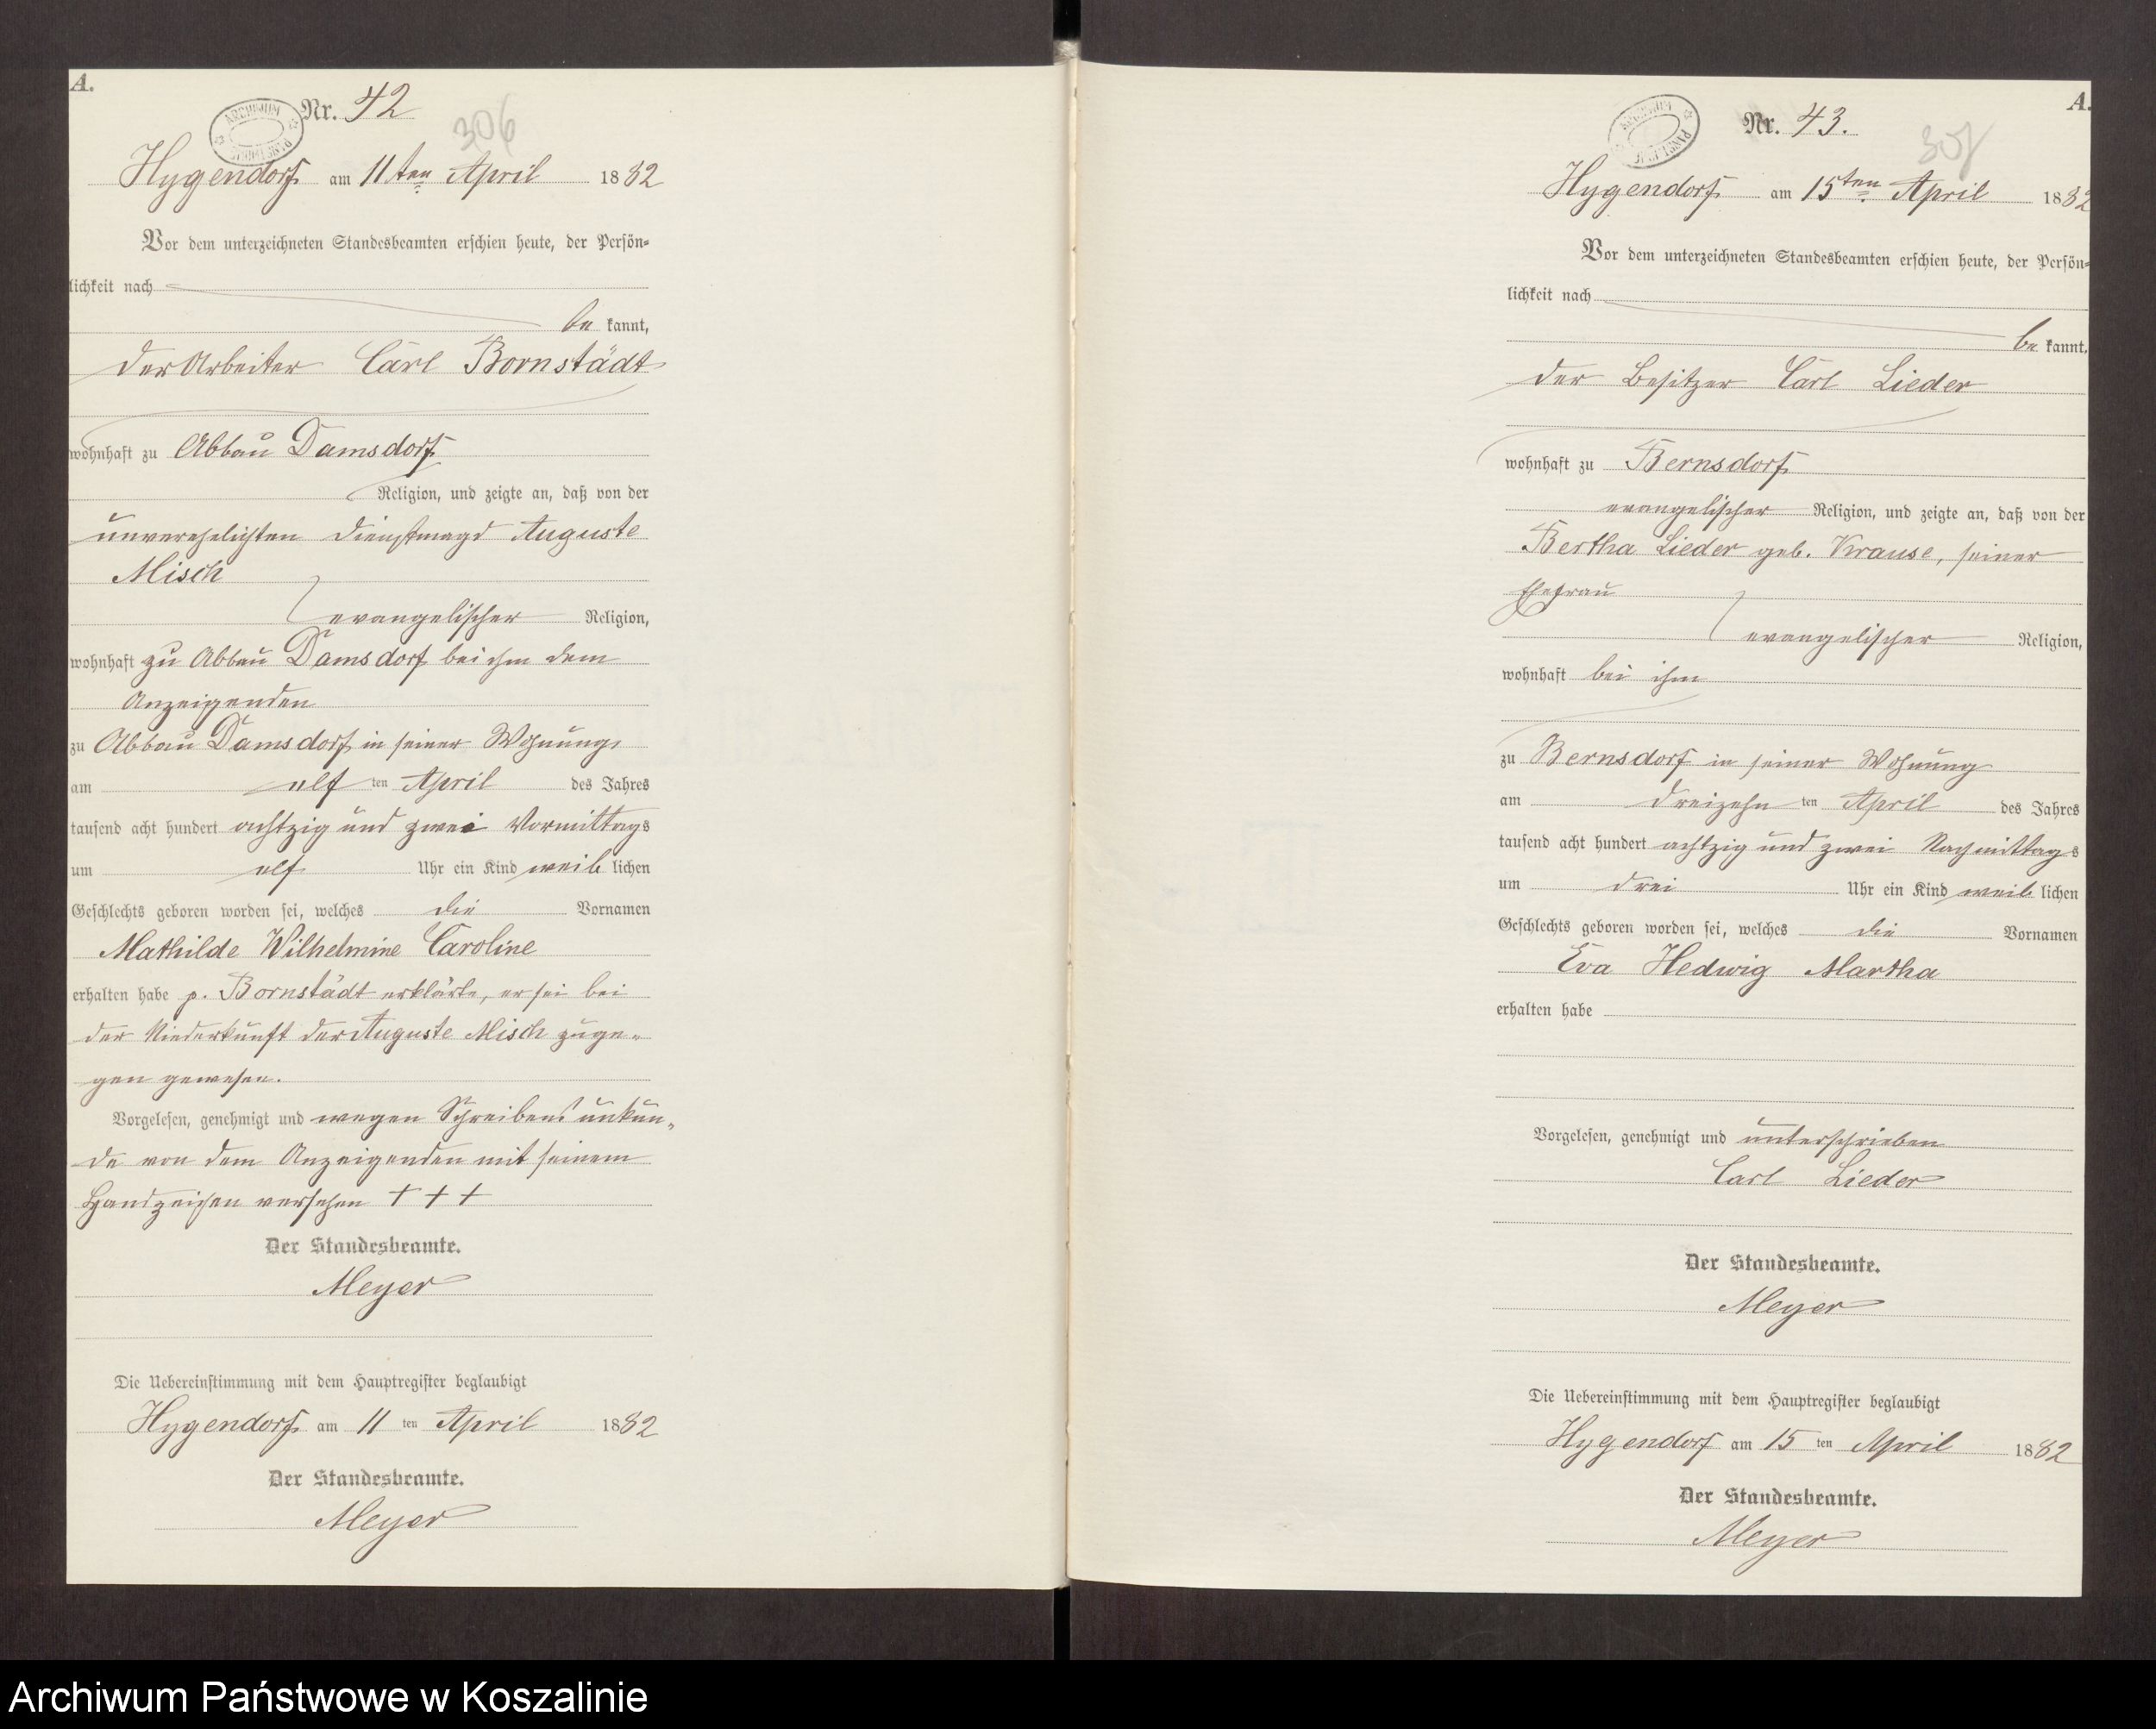 A.
Nr. 42
306
Hygendorf am 11ten April 1882
Vor dem unterzeichneten Standesbeamten erschien heute, der Persön-
lichkeit nach
be kannt,
der Arbeiter Carl Bornstädt
wohnhaft zu Abbau Damsdorf
Religion, und zeigte an, daß von der
unverehelichten Dienstmagd Auguste
Misch
evangelischer Religion,
wohnhaft zu Abbau Damsdorf bei ihm dem
Anzeigenden
zu Abbau Damsdorf in seiner Wohnung
am elf ten April des Jahres
tausend acht hundert achtzig und zwei Vormittags
um elf Uhr ein Kind weib lichen
Geschlechts geboren worden sei, welches die Vornamen
Mathilde Wilhelmine Caroline
erhalten habe p. Bornstädt erklärte, er sei bei
der Niederkunft der Auguste Misch zuge-
gen gewesen.
Vorgelesen, genehmigt und wegen Schreibens unkun-
de von dem Anzeigenden mit seinem
Handzeichen versehen + + +
Der Standesbeamte.
Meyer
Die Uebereinstimmung mit dem Hauptregister beglaubigt
Hygendorf am 11 ten April 1882
Der Standesbeamte.
Meyer
A.
Nr. 43.
307
Hygendorf am 15ten April 1882
Vor dem unterzeichneten Standesbeamten erschien heute, der Persön-
lichkeit nach
be kannt,
der Besitzer Carl Lieder
wohnhaft zu Bernsdorf
evangelischer Religion, und zeigte an, daß von der
Bertha Lieder geb. Krause, seiner
Ehefrau
evangelischer Religion,
wohnhaft bei ihm
zu Bernsdorf in seiner Wohnung
am dreizehn ten April des Jahres
tausend acht hundert achtzig und zwei Nachmittags
um drei Uhr ein Kind weib lichen
Geschlechts geboren worden sei, welches die Vornamen
Eva Hedwig Martha
erhalten habe
Vorgelesen, genehmigt und unterschrieben
Carl Lieder
Der Standesbeamte.
Meyer
Die Uebereinstimmung mit dem Hauptregister beglaubigt
Hygendorf am 15 ten April 1882
Der Standesbeamte.
Meyer
Archiwum Państwowe w Koszalinie